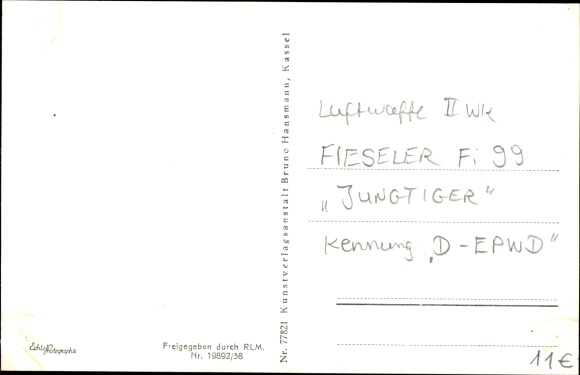 Echte Photographie
Freigegeben durch RLM.
Nr. 19892/38
Nr. 77821 Kunstverlagsanstalt Bruno Hansmann, Kassel
Luftwaffe II WK
FIESELER Fi 99
„JUNGTIGER"
Kennung „D-EPWD"
11€